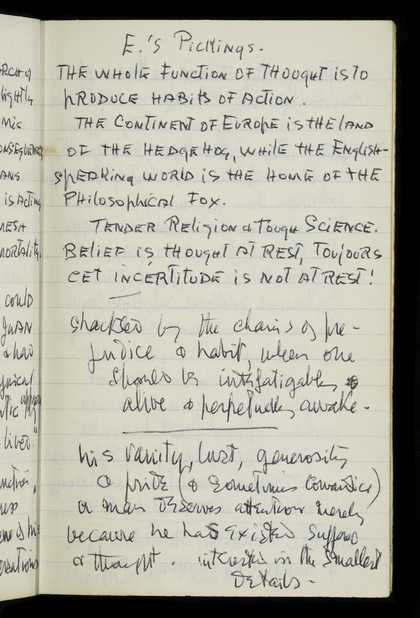 E.'s Pickings.
THE WHOLE FUNCTION OF THOUGHT IS TO
PRODUCE HABITS OF ACTION.
THE CONTINENT OF EUROPE IS THE LAND
OF THE HEDGEHOG, WHILE THE ENGLISH-
SPEAKING WORLD IS THE HOME OF THE
PHILOSOPHICAL FOX.
TENDER RELIGION & TOUGH SCIENCE.
BELIEF IS THOUGHT AT REST, TOUJOURS
CET INCERTITUDE IS NOT AT REST!
shackled by the chains of pre-
judice & habit, when one
should be indefatigably
alive & perpetually awake.
his vanity, lust, generosity
& pride (& sometimes cowardice)
a man deserves attention merely
because he has existed suffered
or thought. interested in the smallest
Details.
RCH of
lightly
MIC
ONSEQUENCE
ANS
IS ACTING
MESH
MORTALITY
could
JUAN
& had
lived